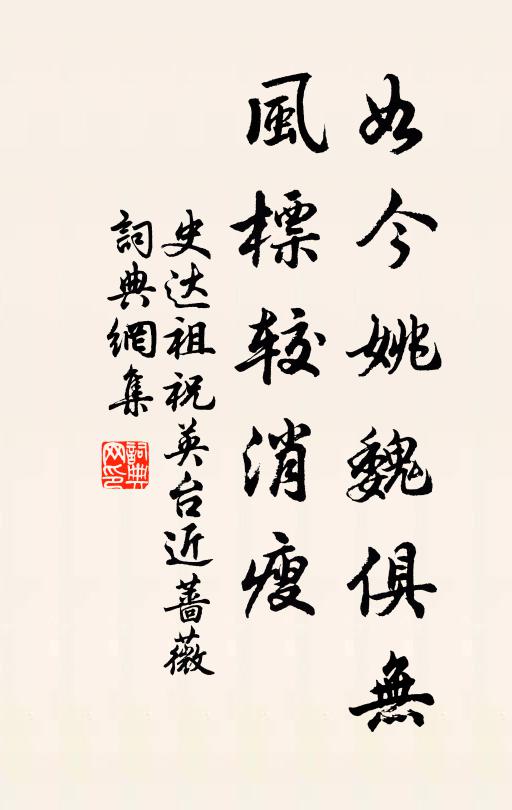 如今姚魏俱無
風標较消瘦
史达祖祝英台近薔薇
詞典網集
詞典网印